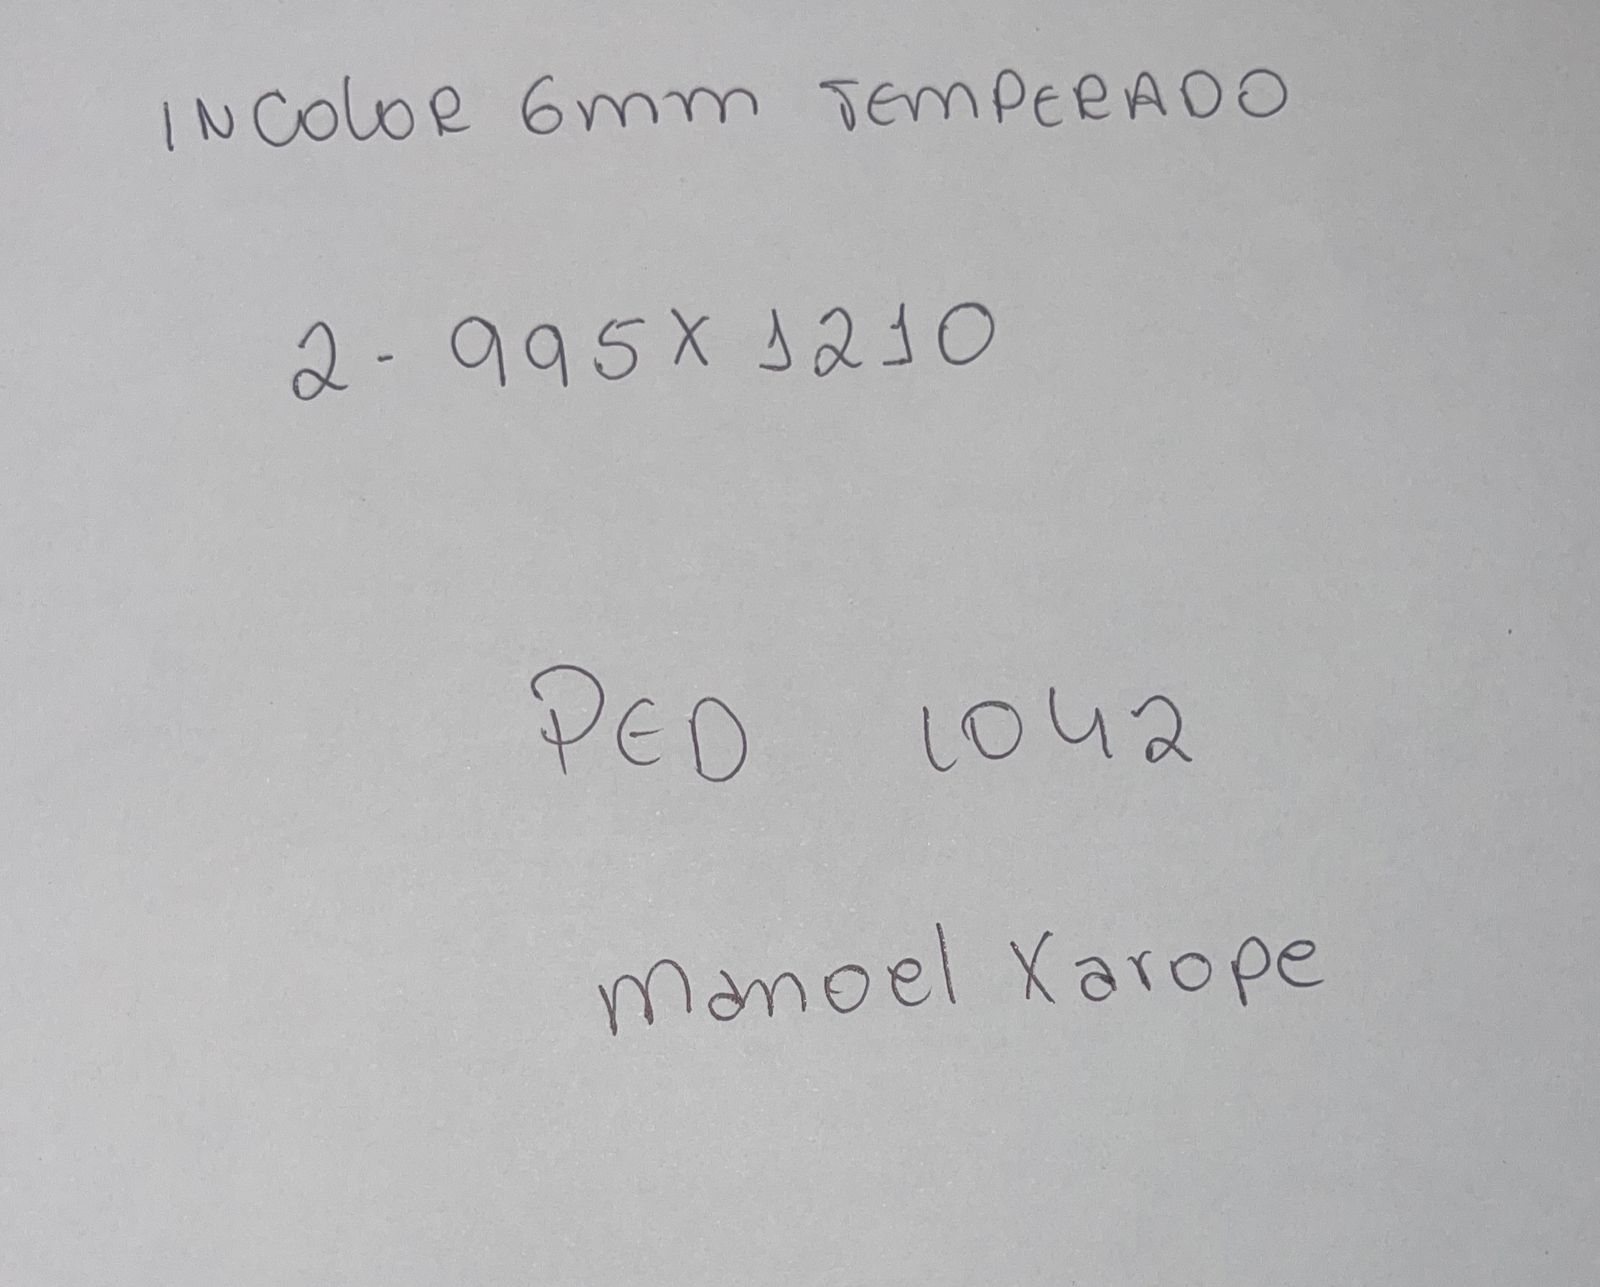 INCOLOR 6mm TEMPERADO
2- 995X1210
PED 1042
manoel Xarope